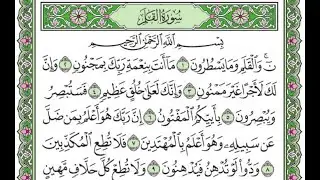 سُورَةُ القَلَمِ
بِسْمِ اللَّهِ الرَّحْمَٰنِ الرَّحِيمِ
نٓ ۚ وَالْقَلَمِ وَمَا يَسْطُرُونَ ١ مَا أَنتَ بِنِعْمَةِ رَبِّكَ بِمَجْنُونٍ ٢ وَإِنَّ
لَكَ لَأَجْرًا غَيْرَ مَمْنُونٍ ٣ وَإِنَّكَ لَعَلَىٰ خُلُقٍ عَظِيمٍ ٤ فَسَتُبْصِرُ
وَيُبْصِرُونَ ٥ بِأَييِّكُمُ الْمَفْتُونُ ٦ إِنَّ رَبَّكَ هُوَ أَعْلَمُ بِمَن ضَلَّ
عَن سَبِيلِهِ وَهُوَ أَعْلَمُ بِالْمُهْتَدِينَ ٧ فَلَا تُطِعِ الْمُكَذِّبِينَ
٨ وَدُّوا لَوْ تُدْهِنُ فَيُدْهِنُونَ ٩ وَلَا تُطِعْ كُلَّ حَلَّافٍ مَّهِينٍ